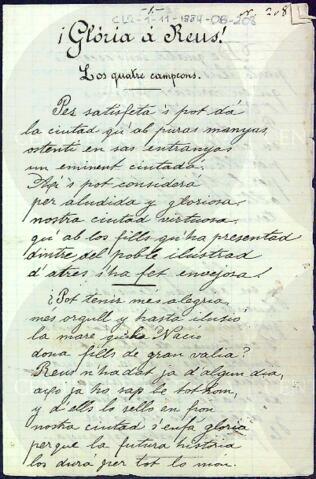 -1-
CLQ-1-11-1884-06-208
nº 208
¡Glória á Reus!
Los quatre campeons.
Per satisfeta 's pot dá
la ciutad qu' ab puras manyas,
ostenti en sas entranyas
un eminent ciutadá.
's pot considerá
per aludida y gloriosa
nostra ciutad virtuosa
qu' ab los fills qu' ha presentad
dintre del poble ilustrad
d' atres s' ha fet envejosa!
¿Pot tenir mes alegria
mes orgull y hasta ilusió
la mare que la Nació
dona fills de gran valia?
Reus n' ha dat ja d' algun dia,
açó ja ho sap be tothom,
y d' ells lo sello en fron
nostra ciutad s' en fá gloria
perque la futura historia
los durá per tot lo mon.